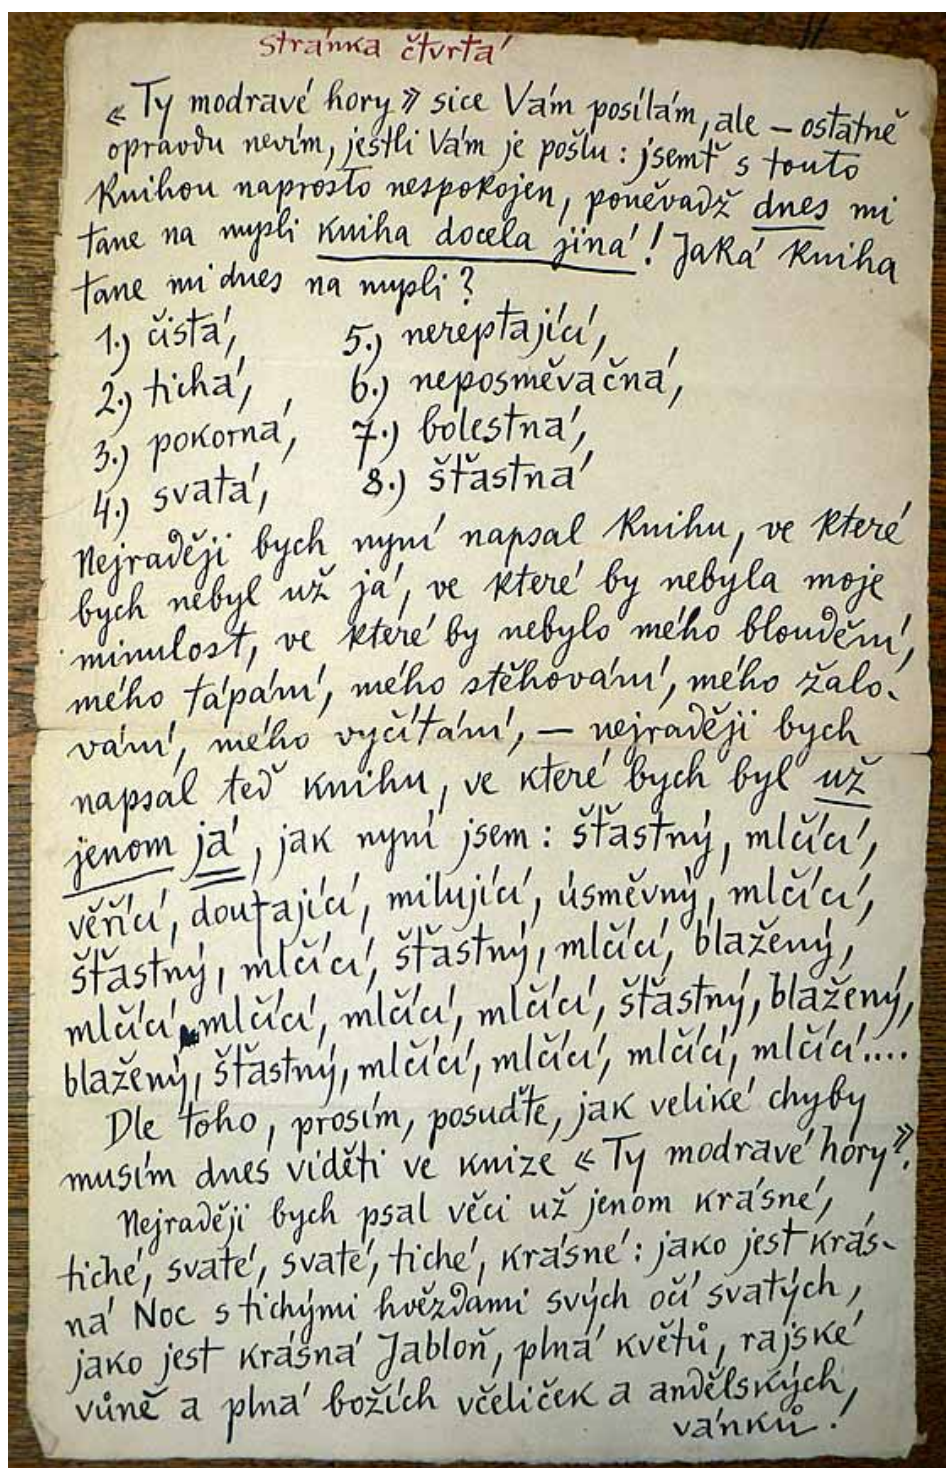 stránka čtvrtá
« Ty modravé hory » sice Vám posílám, ale – ostatně
opravdu nevím, jestli Vám je pošlu : jsemť s touto
Knihou naprosto nespokojen, poněvadž dnes mi
tane na mysli kniha docela jiná ! Jaká kniha
tane mi dnes na mysli ?
1.) čistá, 5.) nereptající,
2.) tichá, 6.) neposměvačná,
3.) pokorná, 7.) bolestná,
4.) svatá, 8.) šťastná
Nejraději bych nyní napsal knihu, ve které
bych nebyl už já, ve které by nebyla moje
minulost, ve které by nebylo mého bloudění,
mého tápání, mého stěhování, mého žalo-
vání, mého vyčítání, – nejraději bych
napsal teď knihu, ve které bych byl už
jenom já, jak nyní jsem : šťastný, mlčící,
věřící, doufající, milující, úsměvný, mlčící,
šťastný, mlčící, šťastný, mlčící, blažený,
mlčící, mlčící, mlčící, mlčící, šťastný, blažený,
blažený, šťastný, mlčící, mlčící, mlčící, mlčící....
Dle toho, prosím, posuďte, jak veliké chyby
musím dnes viděti ve knize « Ty modravé hory ».
Nejraději bych psal věci už jenom krásné,
tiché, svaté, svaté, tiché, krásné : jako jest krás-
ná Noc s tichými hvězdami svých očí svatých,
jako jest krásná Jabloň, plná květů, rajské
vůně a plná božích včeliček a andělských
vánků !